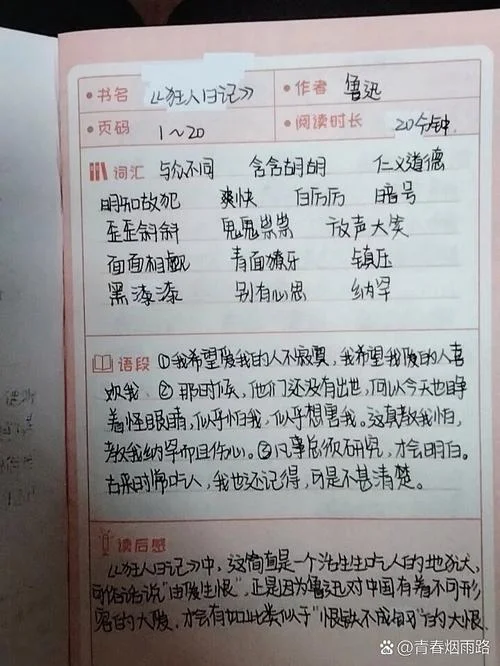 书名 《狂人日记》 作者 鲁迅
页码 1~20 阅读时长 20分钟
词汇 与众不同 含含胡胡 仁义道德
明知故犯 爽快 白厉厉 暗号
歪歪斜斜 鬼鬼祟祟 放声大笑
面面相觑 青面獠牙 镇压
黑漆漆 别有心思 纳罕
语段 ①我希望爱我的人不寂寞，我希望我爱的人喜
欢我。②那时候，他们还没有出世，何以今天也睁
着怪眼睛，似乎怕我，似乎想害我。这真教我怕，
教我纳罕而且伤心。③凡事总须研究，才会明白。
古来时常吃人，我也还记得，可是不甚清楚。
读后感
《狂人日记》中，这简直是一个活生生吃人的地狱，
可俗话说"由爱生恨"，正是因为鲁迅对中国有着不可形
容的大爱，才会有如此类似于"恨铁不成钢"的大恨.
@青春烟雨路